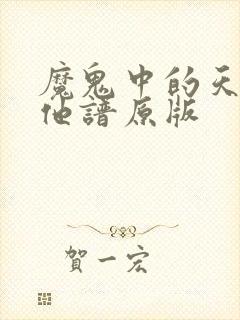 魔鬼中的天
他譜原版
賀一宏